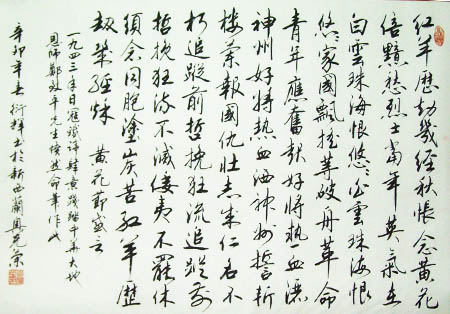 红羊歷劫幾經秋悵念黃花
倍黯愁烈士當年英氣在
白雲珠海恨悠悠白雲珠海恨
悠悠家國飄搖等破舟革命
青年應奮起好將熱血灑
神州好將熱血洒神州誓斬
樓蘭報國仇壯志成仁名不
朽追蹤前哲挽狂流追蹤前
哲挽狂流不滅倭夷不罷休
須念同胞塗炭苦紅羊歷
劫幾經秋 黃花節感云
一九四二年日寇肆意踐踏中華大地
恩師鄭平先生憤然命筆作此
辛卯年春衍輝書於新西蘭奧克蘭